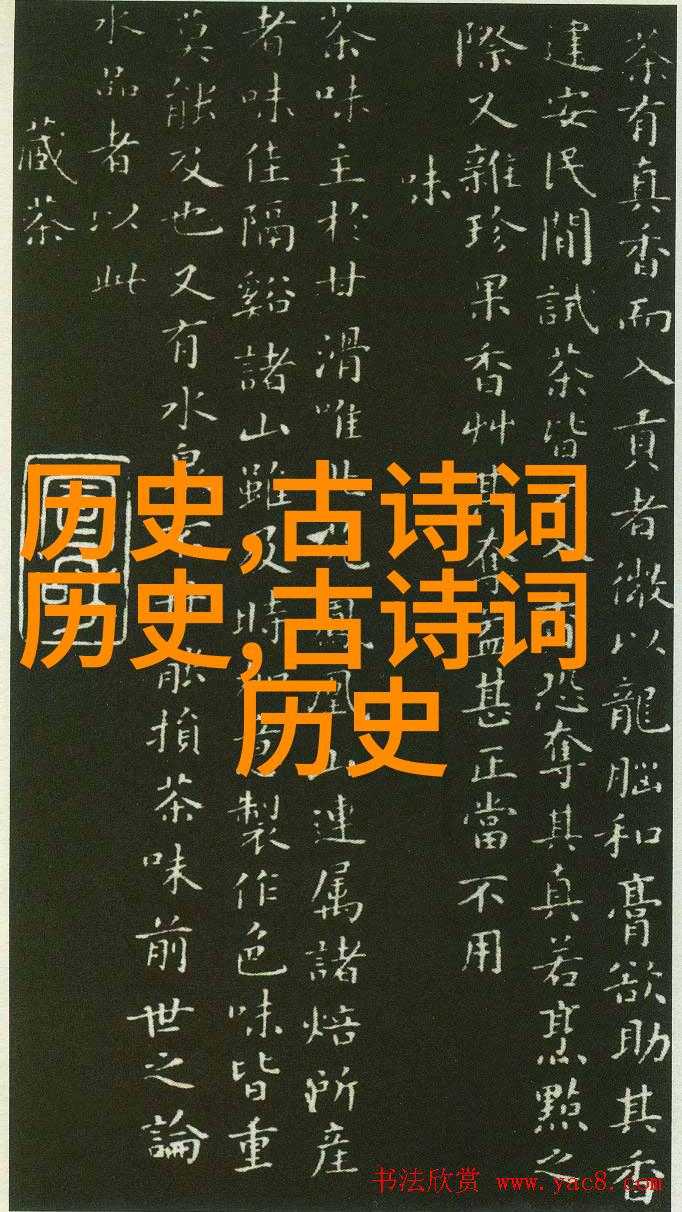 茶有真香而入貢者微以龍腦和膏欲助其香
建安民間試茶皆不入香恐奪其真若烹點之
際又雜珍果香艸其奪益甚正當不用
味
茶味主於甘滑唯北苑鳳凰山連属諸焙所産
者味佳隔谿諸山雖及時加意製作色味皆重
莫能及也又有水泉不甘能損茶味前世之論
水品者以此
藏茶
历史,古诗词
历史,古诗词
历史
书法欣赏 www.yac8.com